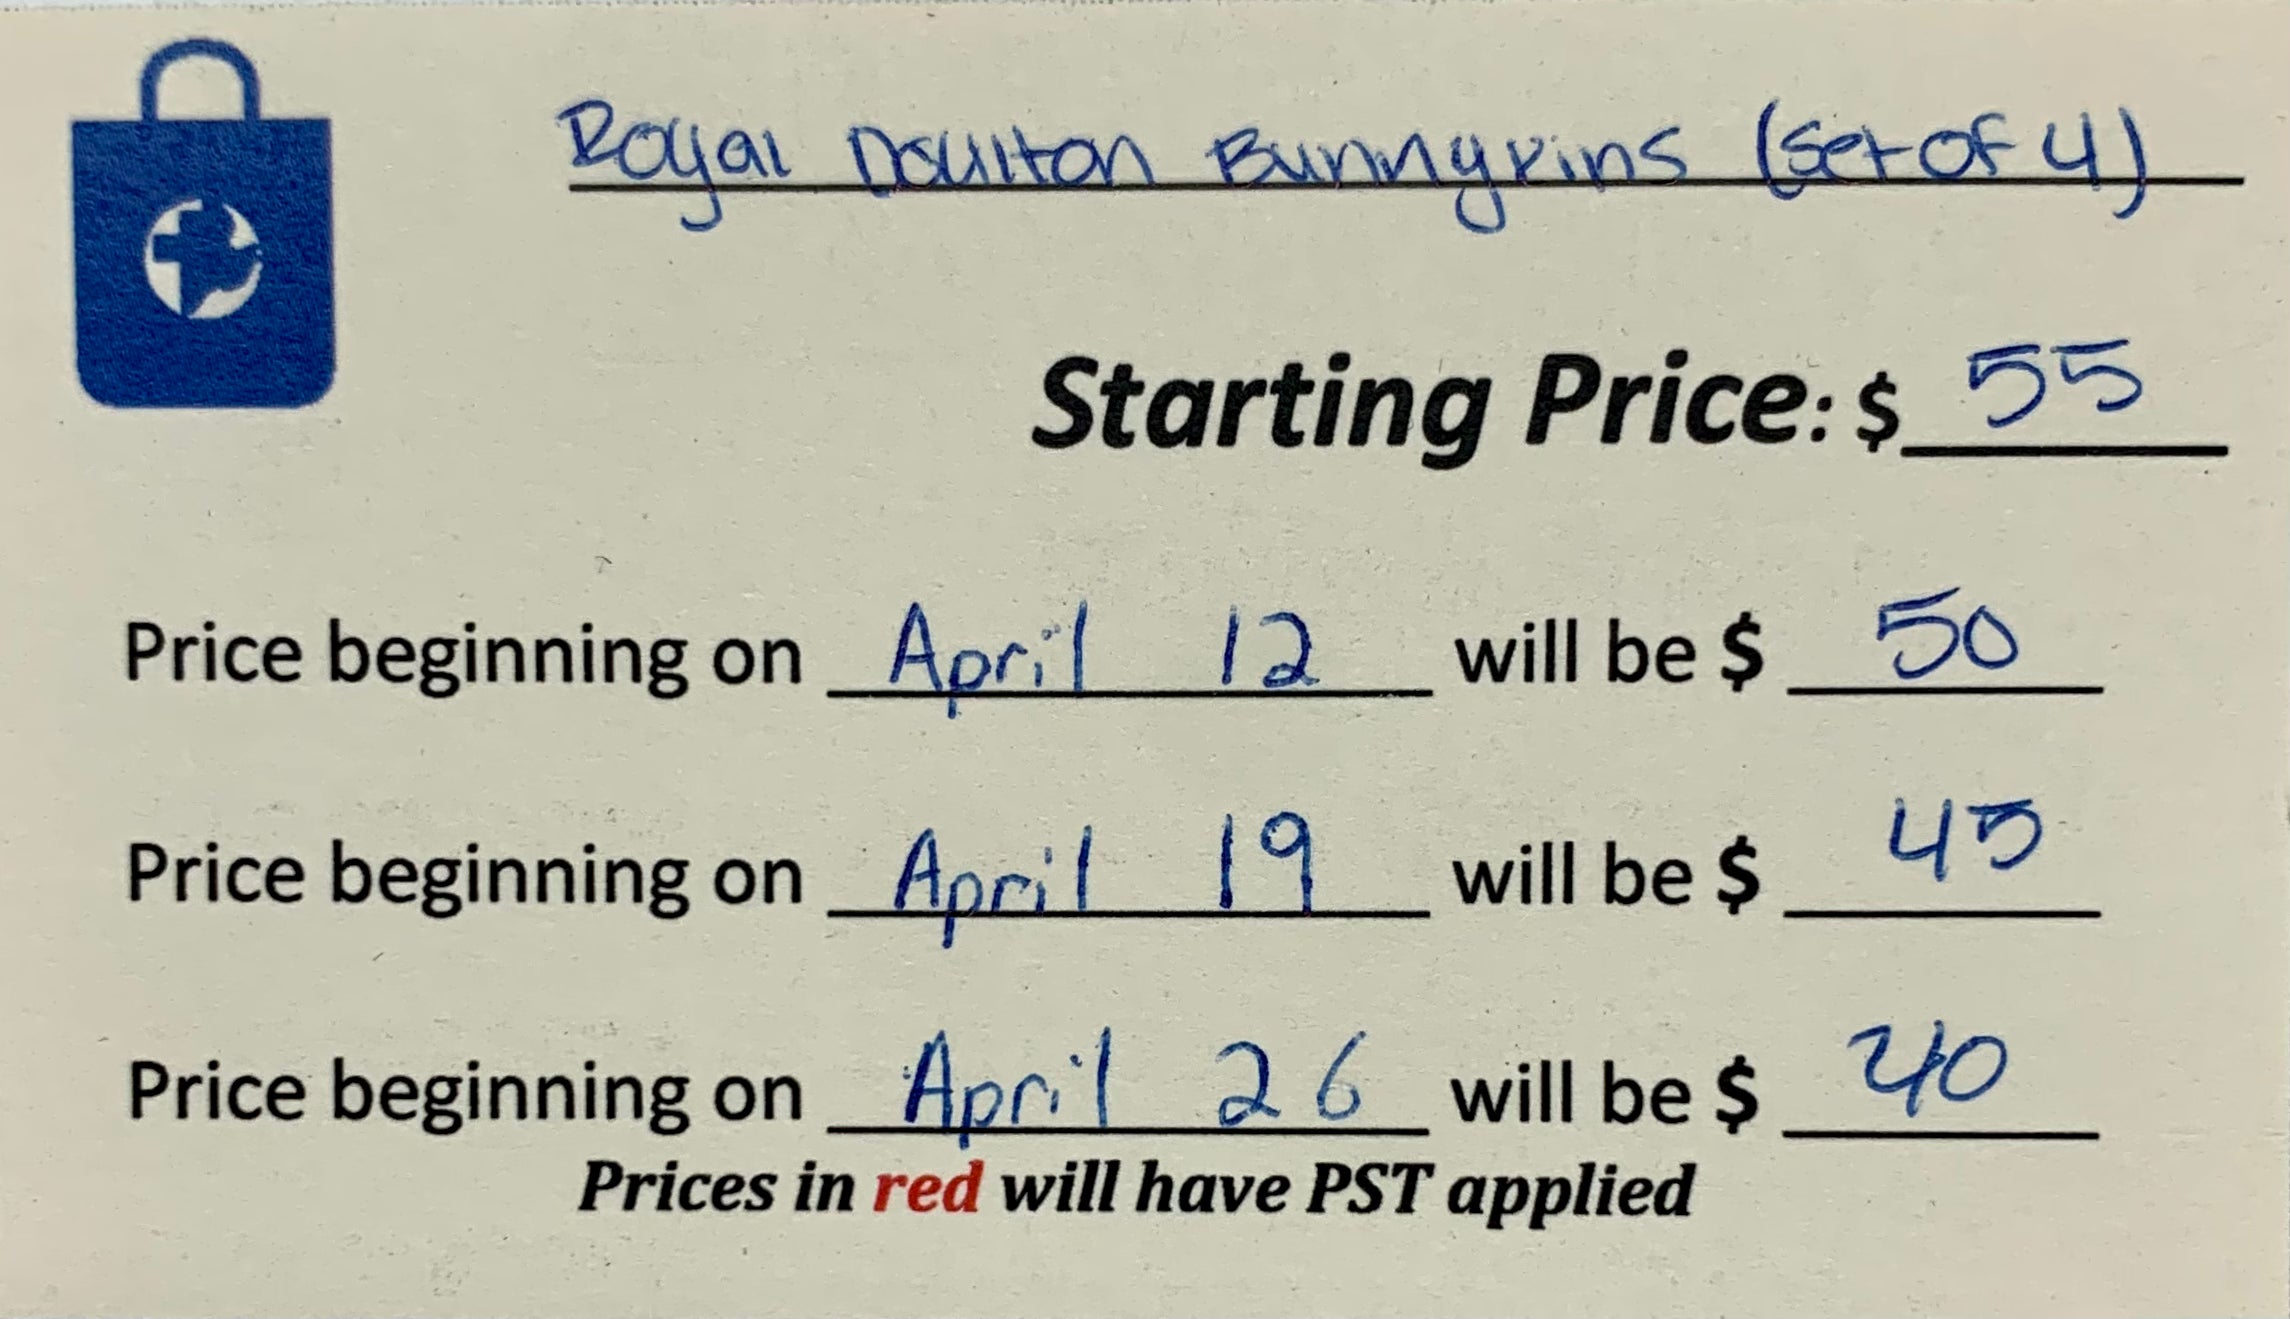 Royal Doulton Bunnykins (Set of 4)
Starting Price: $ 55
Price beginning on April 12 will be $ 50
Price beginning on April 19 will be $ 45
Price beginning on April 26 will be $ 40
Prices in red will have PST applied